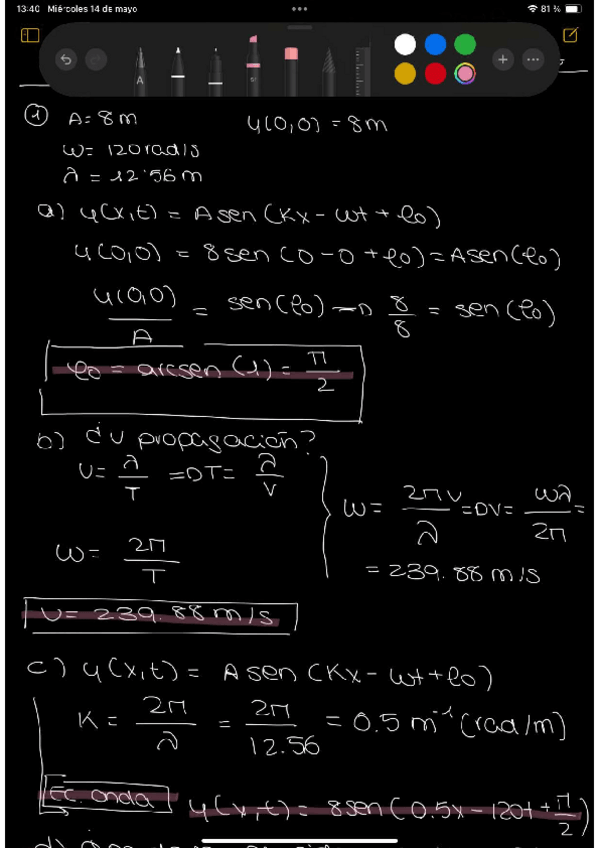 13:40 Miércoles 14 de mayo
81 %
A
① A = 8m y(0,0) = 8m
ω = 120 rad/s
λ = 12'56 m
a) y(x,t) = A sen (Kx - ωt + φ0)
y(0,0) = 8 sen (0 - 0 + φ0) = A sen (φ0)
y(0,0)/A = sen (φ0) ⇒ 8/8 = sen (φ0)
φ0 = arcsen (1) = π/2
b) ¿v propagación?
v = λ/T ⇒ T = λ/v
ω = 2π/T
ω = 2πv/λ ⇒ v = ωλ/2π =
= 239.88 m/s
v = 239.88 m/s
c) y(x,t) = A sen (Kx - ωt + φ0)
K = 2π/λ = 2π/12.56 = 0.5 m⁻¹ (rad/m)
Ec. onda y(x,t) = 8 sen (0.5x - 120t + π/2)